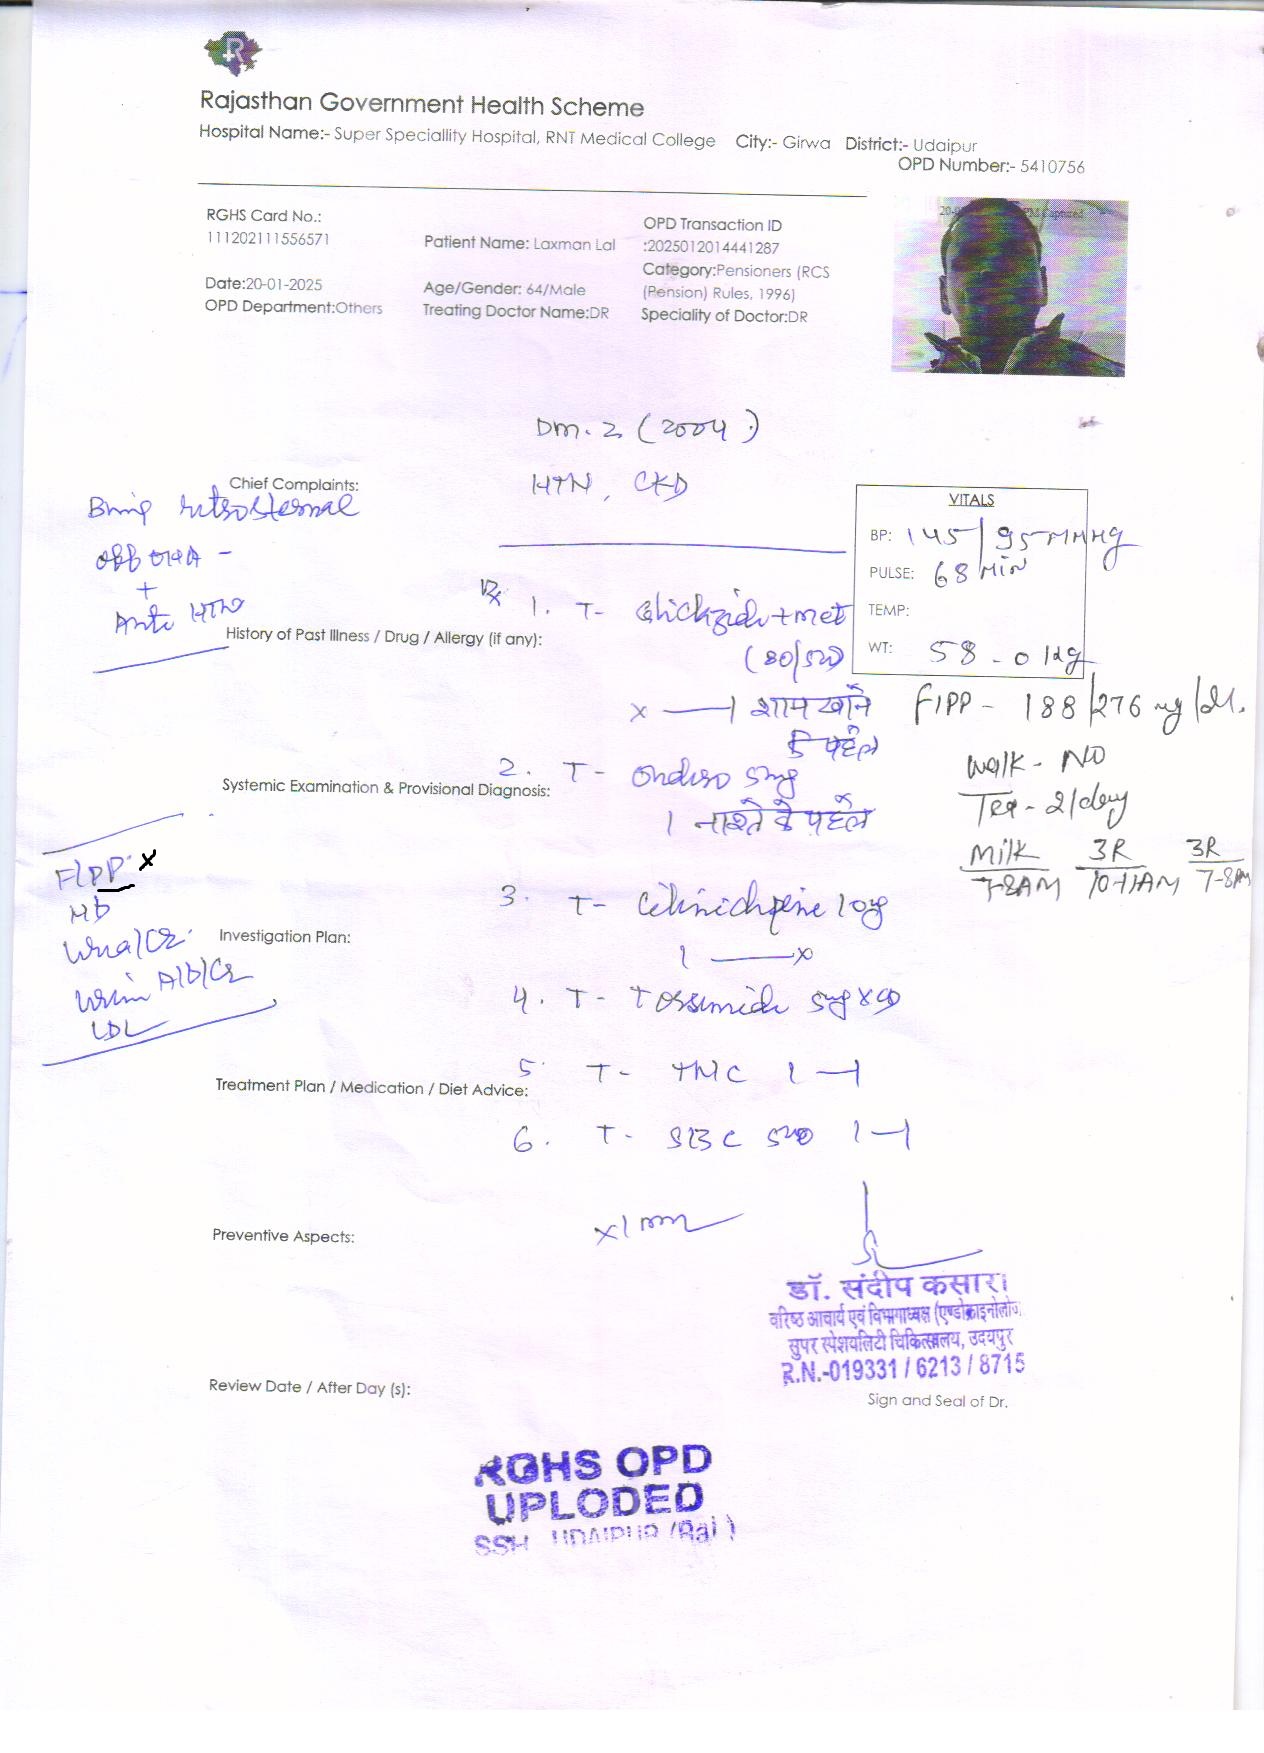 Rajasthan Government Health Scheme
Hospital Name:- Super Speciallity Hospital, RNT Medical College City:- Girwa District:- Udaipur
OPD Number:- 5410756
RGHS Card No.:
111202111556571
Patient Name: Laxman Lal
OPD Transaction ID
:2025012014441287
Category:Pensioners (RCS
(Pension) Rules, 1996)
Date:20-01-2025
Age/Gender: 64/Male
OPD Department:Others
Treating Doctor Name:DR
Speciality of Doctor:DR
Captured
DM.2 (2004)
HTN, CKD
Chief Complaints:
retrosternal
off OHA -
+
Anti HTN
VITALS
BP: 145/95 MMHg
PULSE: 68 MIN
TEMP:
WT: 58.0 Kg
Rx
1. T- +met
(80/500)
x —— 1 शाम खाने
के पहले
History of Past Illness / Drug / Allergy (if any):
F/PP - 188/276 mg/dl.
Walk - NO
Tea - 2/day
Milk 3R 3R
7-8AM 10-11AM 7-8PM
2. T- 5mg
1 नाश्ते के पहले
Systemic Examination & Provisional Diagnosis:
F/PP x
Hb
Urea/Cr.
Urin Alb/Cr
LDL
3. T- 10mg
1 —— x
Investigation Plan:
4. T- 5mg x OD
5. T- TMC 1 — 1
Treatment Plan / Medication / Diet Advice:
6. T- SBC 500 1 — 1
x 1 mm
Preventive Aspects:
डॉ. संदीप कसारा
वरिष्ठ आचार्य एवं विभागाध्यक्ष (एण्डोक्राइनोलॉज
सुपर स्पेशयलिटी चिकित्सालय, उदयपुर
R.N.-019331 / 6213 / 8715
Review Date / After Day (s):
Sign and Seal of Dr.
RGHS OPD
UPLODED
SSH UDAIPUR (Raj)